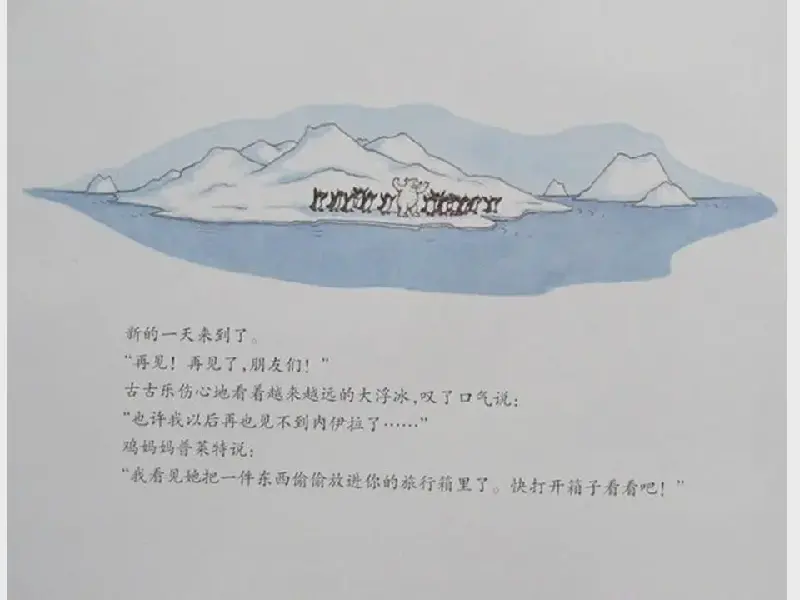 新的一天来到了。
“再见！再见了，朋友们！”
古古乐伤心地看着越来越远的大浮冰，叹了口气说：
“也许我以后再也见不到内伊拉了……”
鸡妈妈普莱特说：
“我看见她把一件东西偷偷放进你的旅行箱里了。快打开箱子看看吧！”